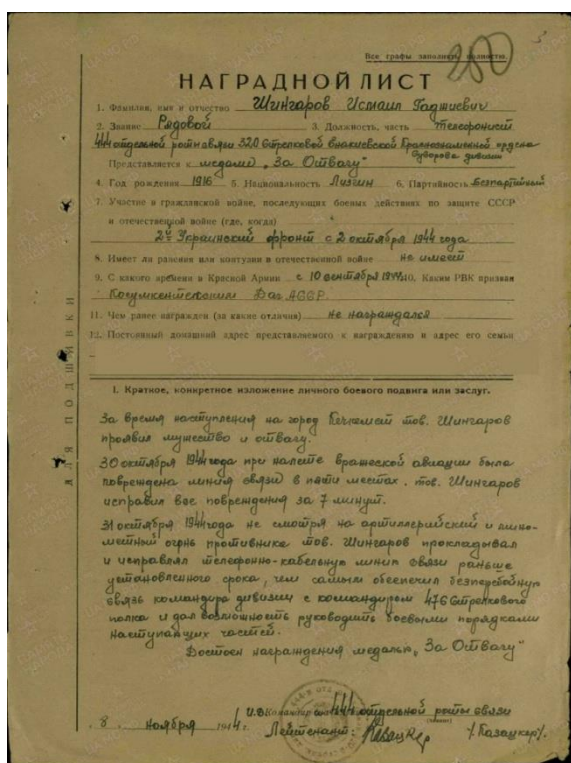 3
Все графы заполнять полностью.
280
НАГРАДНОЙ ЛИСТ
1. Фамилия, имя и отчество Шингаров Исмаил Гаджиевич
2. Звание Рядовой 3. Должность, часть телефонист
444 отдельной роты связи 320 Стрелковой Енакиевской Краснознаменной ордена
Суворова дивизии
Представляется к медали „За Отвагу"
4. Год рождения 1916 5. Национальность Лизгин 6. Партийность Безпартийный
7. Участие в гражданской войне, последующих боевых действиях по защите СССР
и отечественной войне (где, когда)
2й Украинский фронт с 2 октября 1944 года
8. Имеет ли ранения или контузии в отечественной войне не имеет
9. С какого времени в Красной Армии с 10 сентября 1944 10. Каким РВК призван
Касумкентским Даг. АССР.
11. Чем ранее награжден (за какие отличия) не награждался
12. Постоянный домашний адрес представляемого к награждению и адрес его семьи
ДЛЯ ПОДШИВКИ
I. Краткое, конкретное изложение личного боевого подвига или заслуг.
За время наступления на город Кечкемет тов. Шингаров
проявил мужество и отвагу.
30 октября 1944 года при налете вражеской авиации была
повреждена линия связи в пяти местах. тов. Шингаров
исправил все повреждения за 7 минут.
31 октября 1944 года не смотря на артиллерийский и мино-
метный огнь противника тов. Шингаров прокладывал
и исправлял телефонно-кабельную линию связи раньше
установленного срока, чем самым обеспечил безперебойную
связь командира дивизии с командиром 476 Стрелкового
полка и дал возможность руководить боевыми порядками
наступающих частей.
Достоен награждения медалью „За Отвагу"
И.О. Командир 444 отдельной роты связи
8 ноября 1944 г. Лейтенант: Казацкер /Казацкер/.